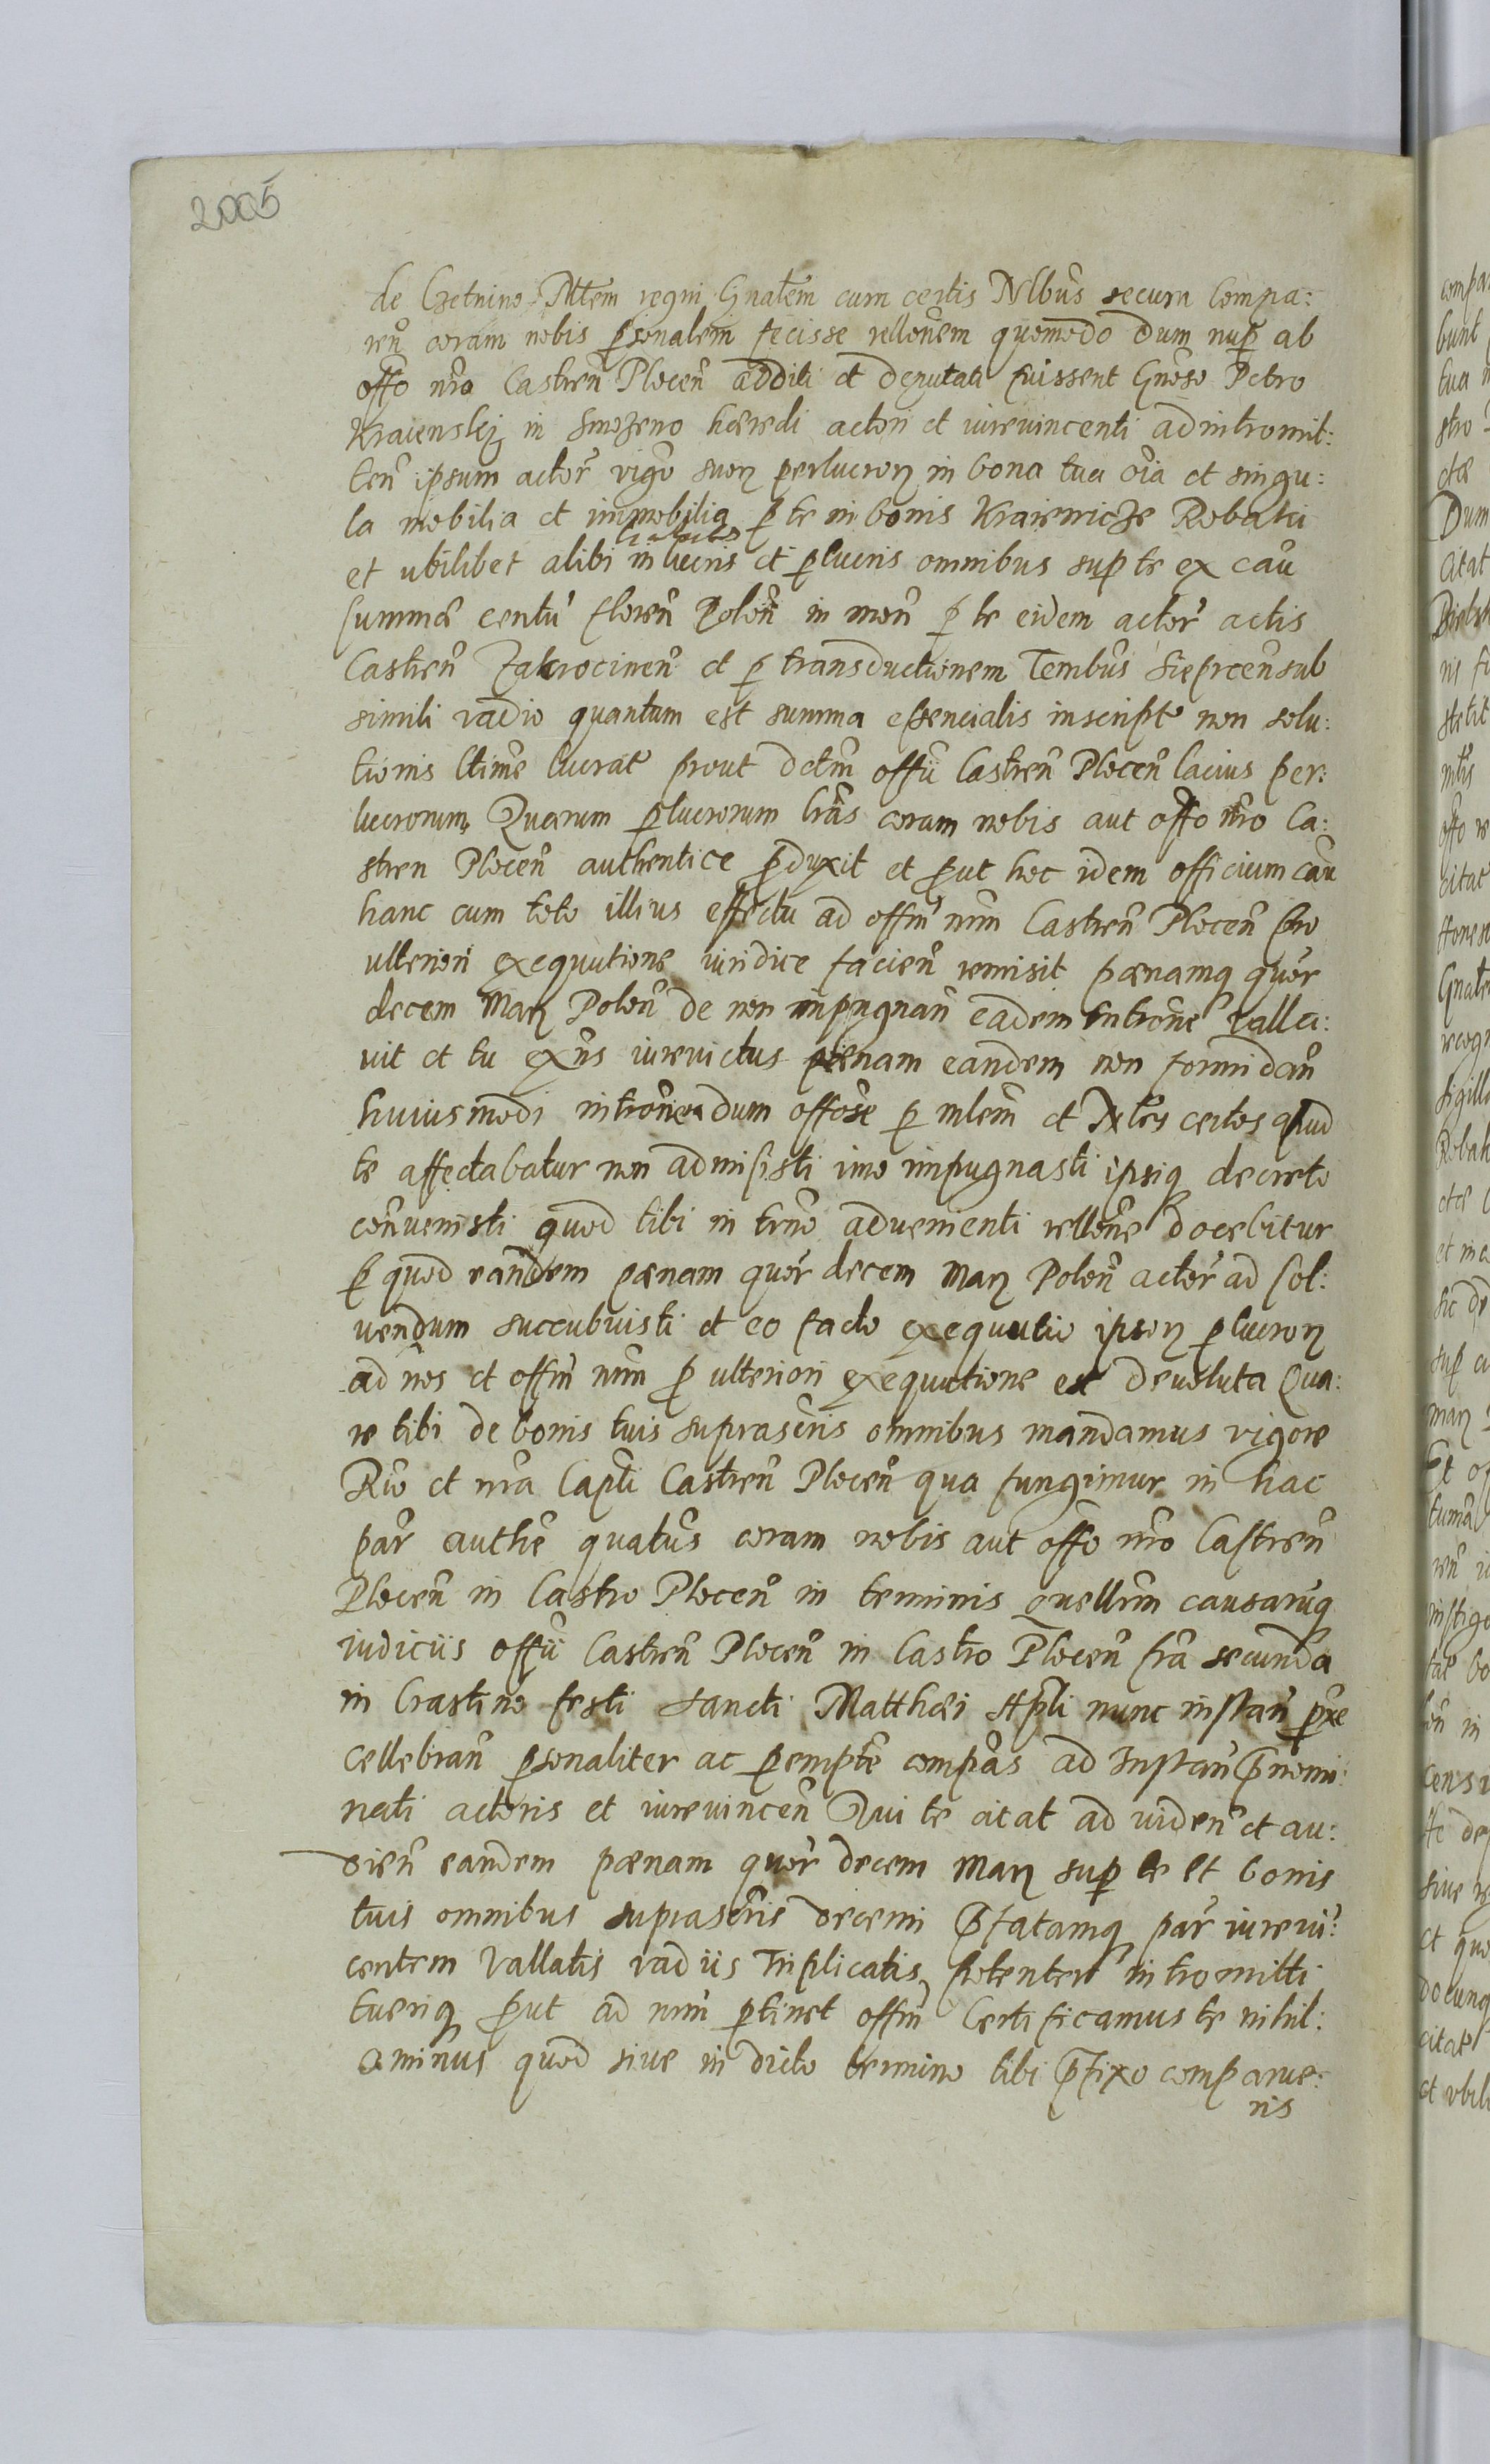 2005
de Czetnino Mltem regni Gnałem cum certis Nlbus secum Compa:
ren coram nobis psonalem fecisse rellonem quomodo dum nup ab
offo nro Castren Plocen additi et deputati fuissent Gnoso Petro
Kraienskj in Smozeno hæredi actori et iurevincenti ad intromit:
ten ipsum actor vigo suorz perlucrorz in bona tua oia et singu:
la mobilia et immobilia p te in bonis Kraiewicze Robaki
et ubilibet alibi habita
in lucris et plucris omnibus sup te ex cau
summæ centu floren Polon in mon p te eidem actor actis
Castren Zakrocimen et p transductionem Tembus Sieprcen sub
simili vadio quantum est summa essencialis inscripte non solu:
tionis ltime lucrat prout dctm offii Castren Plocen lacius per:
lucrorum Quarum plucrorum lras coram nobis aut offo nro Ca:
stren Plocen authentice pduxit et put hoc idem officium cau
hanc cum toto illius effectu ad offm nrm Castren Plocen pro
ulteriori exequutione iuridice facien remisit pænamq quor
decem Marz Polon de non impugnan eadem introne valla:
vit et tu exns iurevictus pænam eandem non formidan
huiusmodi intronendum offose p mlem et Nles certos apud
te affectabatur non admisisti imo impugnasti ipsiq decreto
convenisti quod tibi in trno advenienti rellone docebitur
P quod eandem pænam quor decem Marz Polon actor ad sol:
vendum succubuisti et eo facto exequutio ipsorz plucrorz
ad nos et offm nrm p ulteriori exequutione est devoluta Qua:
re tibi de bonis tuis suprascris omnibus mandamus vigore
Rio et nra Capti Castren Plocen qua fungimur in hac
par authe quatus coram nobis aut offo nro Castren
Plocen in Castro Plocen in terminis quellrm causaruq
iudiciis offii Castren Plocen in Castro Plocen fra secunda
in Crastino festi Sancti Matthæi Apli nunc instan pxe
cellebran psonaliter ac pempte compas ad Instan pnomi:
nati actoris et iurevincen Qui te citat ad viden et au:
dien eandem pænam quor decem Marz sup te et bonis
tuis omnibus suprascris decerni pfatamq par iurevi:
centem Vallatis vadiis Triplicatis potenter intromitti
tueriq put ad nrm ptinet offm Certificamus te nihil:
ominus quod sive in dicto termino tibi pfixo comparue:
ris